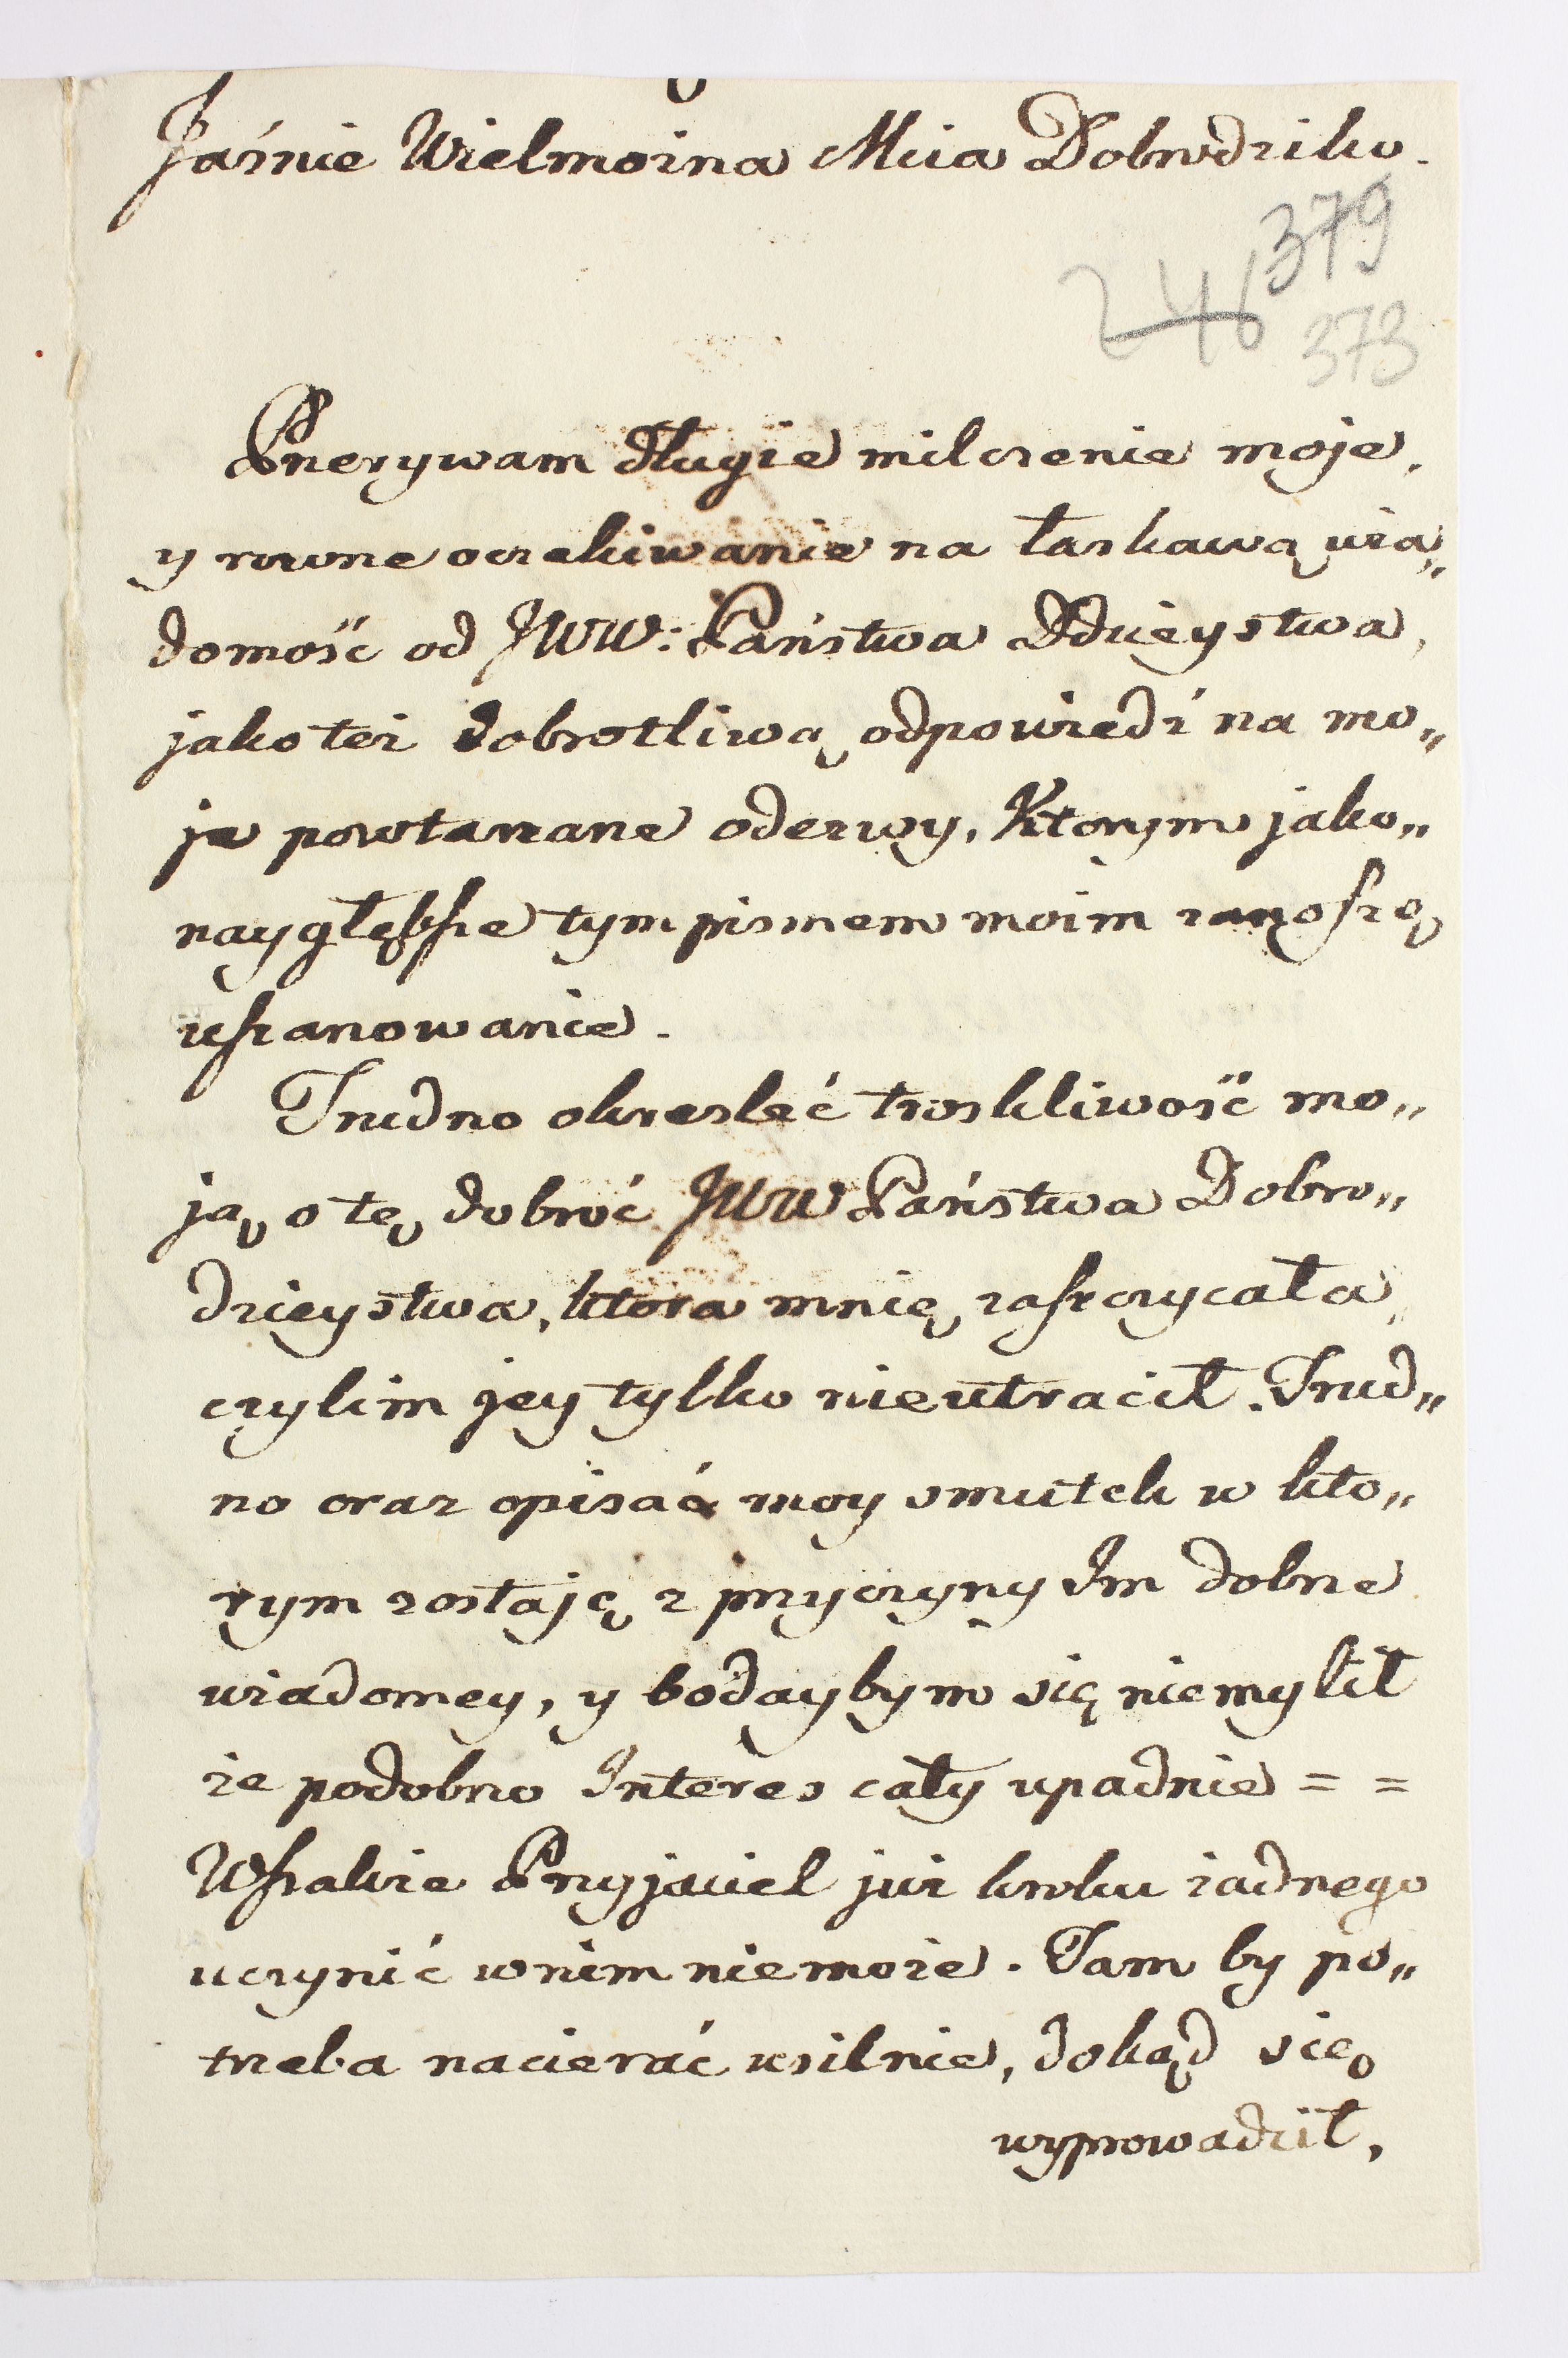 Jaśnie Wielmożna Mcia Dobrodziko.
379
246
373
Przerywam długie milczenie moje,
y rowne oczekiwanie na łaskawą wia„
domość od JWW: Państwa Ddzieystwa,
jakoteż dobrotliwą odpowiedź na mo„
je powtarzane odezwy, Ktorym jako„
naygłębsze tym pismem moim zanoszę
uszanowanie.
Trudno okreslec troskliwość mo„
ją o tę dobroć JWW Państwa Dobro„
dzieystwa, ktora mnię zaszczycała,
czylim jey tylko nieutracił. Trud„
no oraz opisać moy smutek w kto„
rym zostaję z przyczyny Im dobrze
wiadomey, y bodaybym się niemylił
że podobno Interes cały upadnie = =
Wszakże Przyjaciel już kroku żadnego
uczynić wnim niemoże. Tam by po„
trzeba nacierać usilnie, dokąd się
wyprowadził,